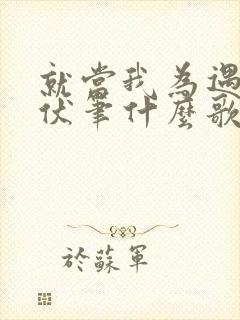 就當我為遇
伏筆什麼歌
於蘇軍